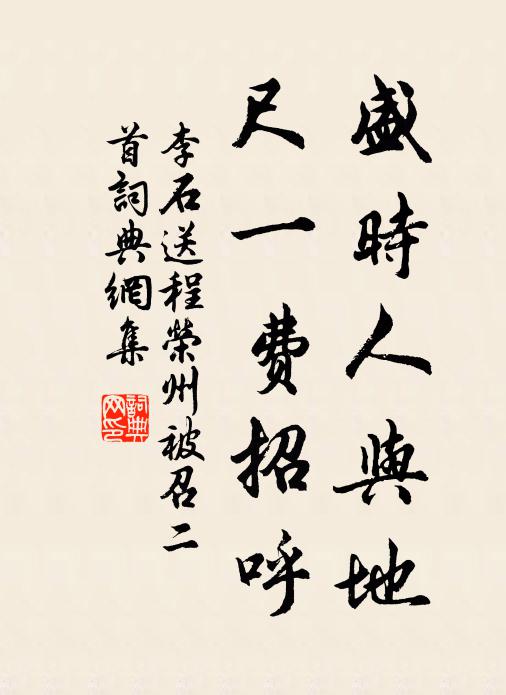 盛時人與地
尺一費招呼
李石送程榮州被召二
首詞典網集
詞典
网印